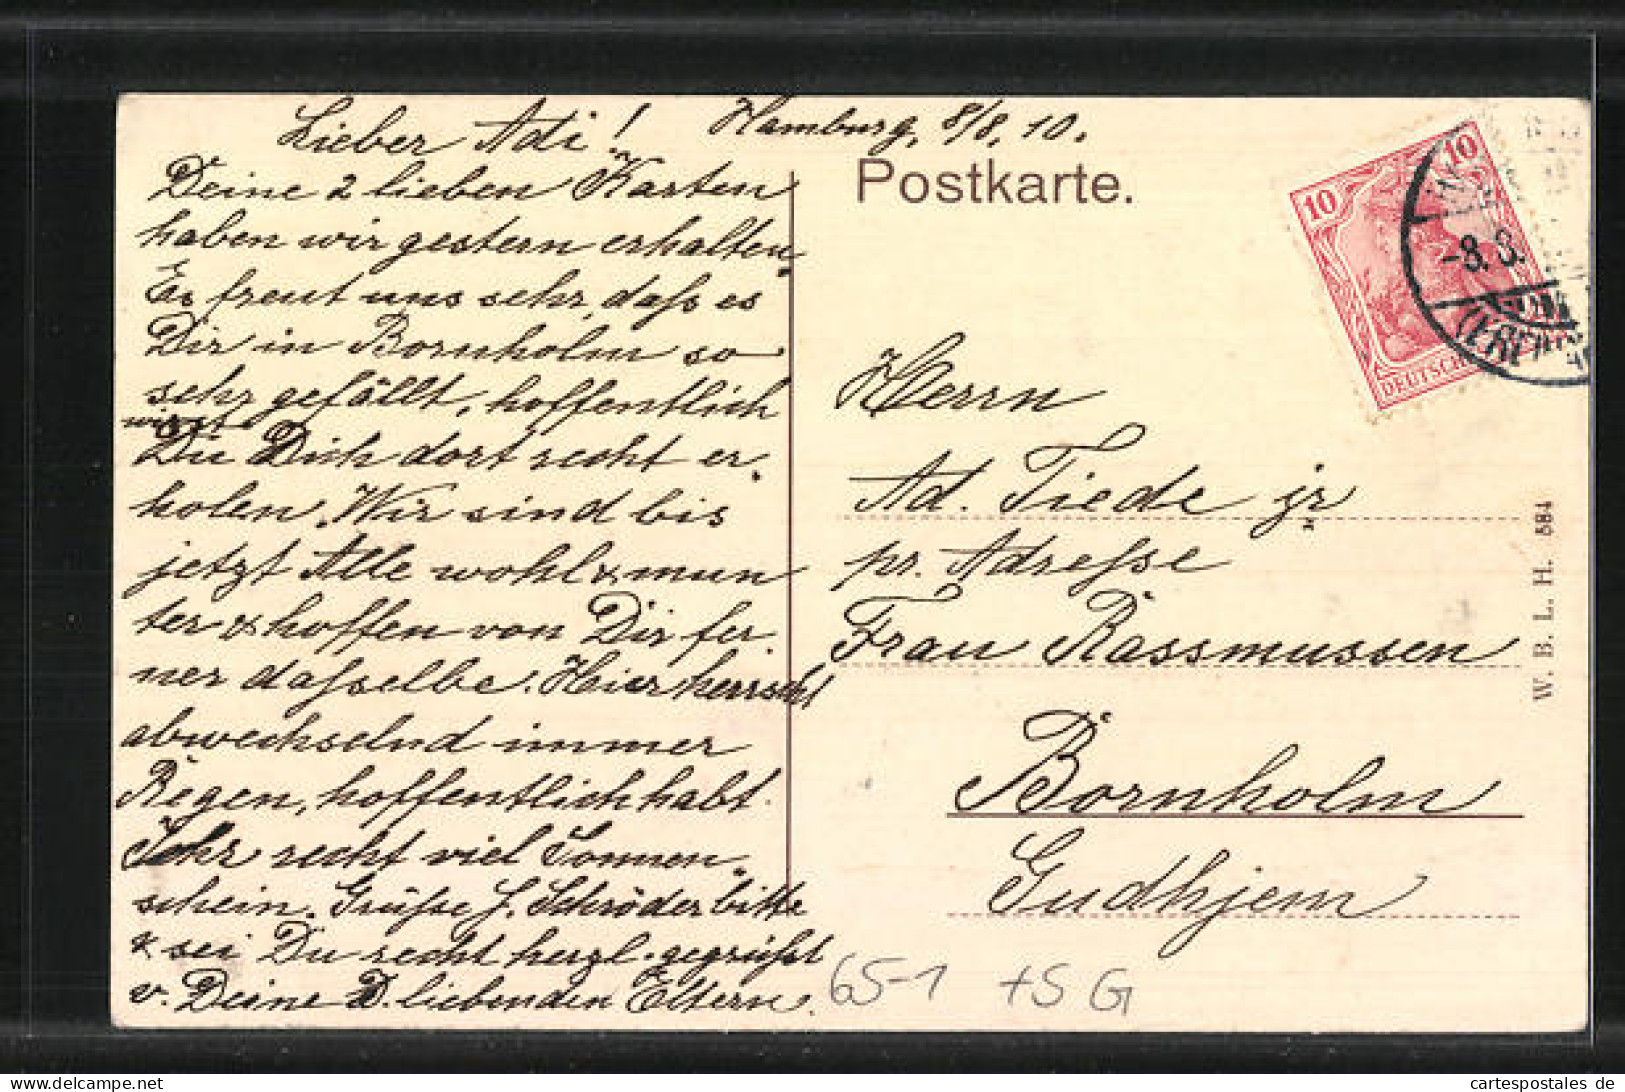 Hamburg, 8/8. 10.
Lieber Adi!
Deine 2 lieben Karten
haben wir gestern erhalten.
Es freut uns sehr, daß es
Dir in Bornholm so
sehr gefällt, hoffentlich
wirst
Du Dich dort recht er-
holen. Wir sind bis
jetzt Alle wohl & mun
ter & hoffen von Dir fer-
ner daßselbe. Hier herrscht
abwechselnd immer
Regen, hoffentlich habt
Ihr recht viel Sonnen-
schein. Grüße f. Schröder bitte
& sei Du recht herzl. gegrüßt
v. Deine D. liebenden Eltern.
Postkarte.
Herrn
Ad. Tiede jr
pr. Adresse
Frau Rassmussen
Bornholm
Gudhjem
10
10
DEUTSCHES
-8. 8.
W. B. L. H. 584
65-1 +SG
cartespostales de